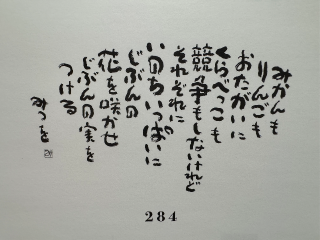 みかんも
りんごも
おたがいに
くらべっこも
競争もしないけれど
それぞれに
いのちいっぱいに
じぶんの
花を咲かせ
じぶんの実を
つける
みつを
284